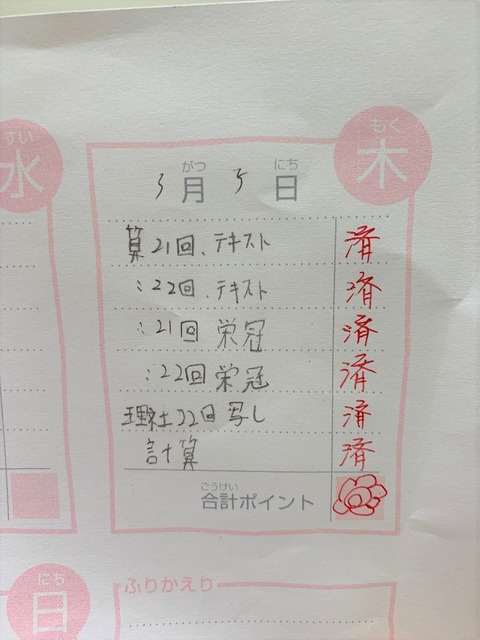 すい
水
もく
木
がつ にち
5月5日
算21回、テキスト 済
:22回、テキスト 済
:21回 栄冠 済
:22回 栄冠 済
理社22回 写し 済
計算 済
ごうけい
合計ポイント
にち
日
ふりかえり